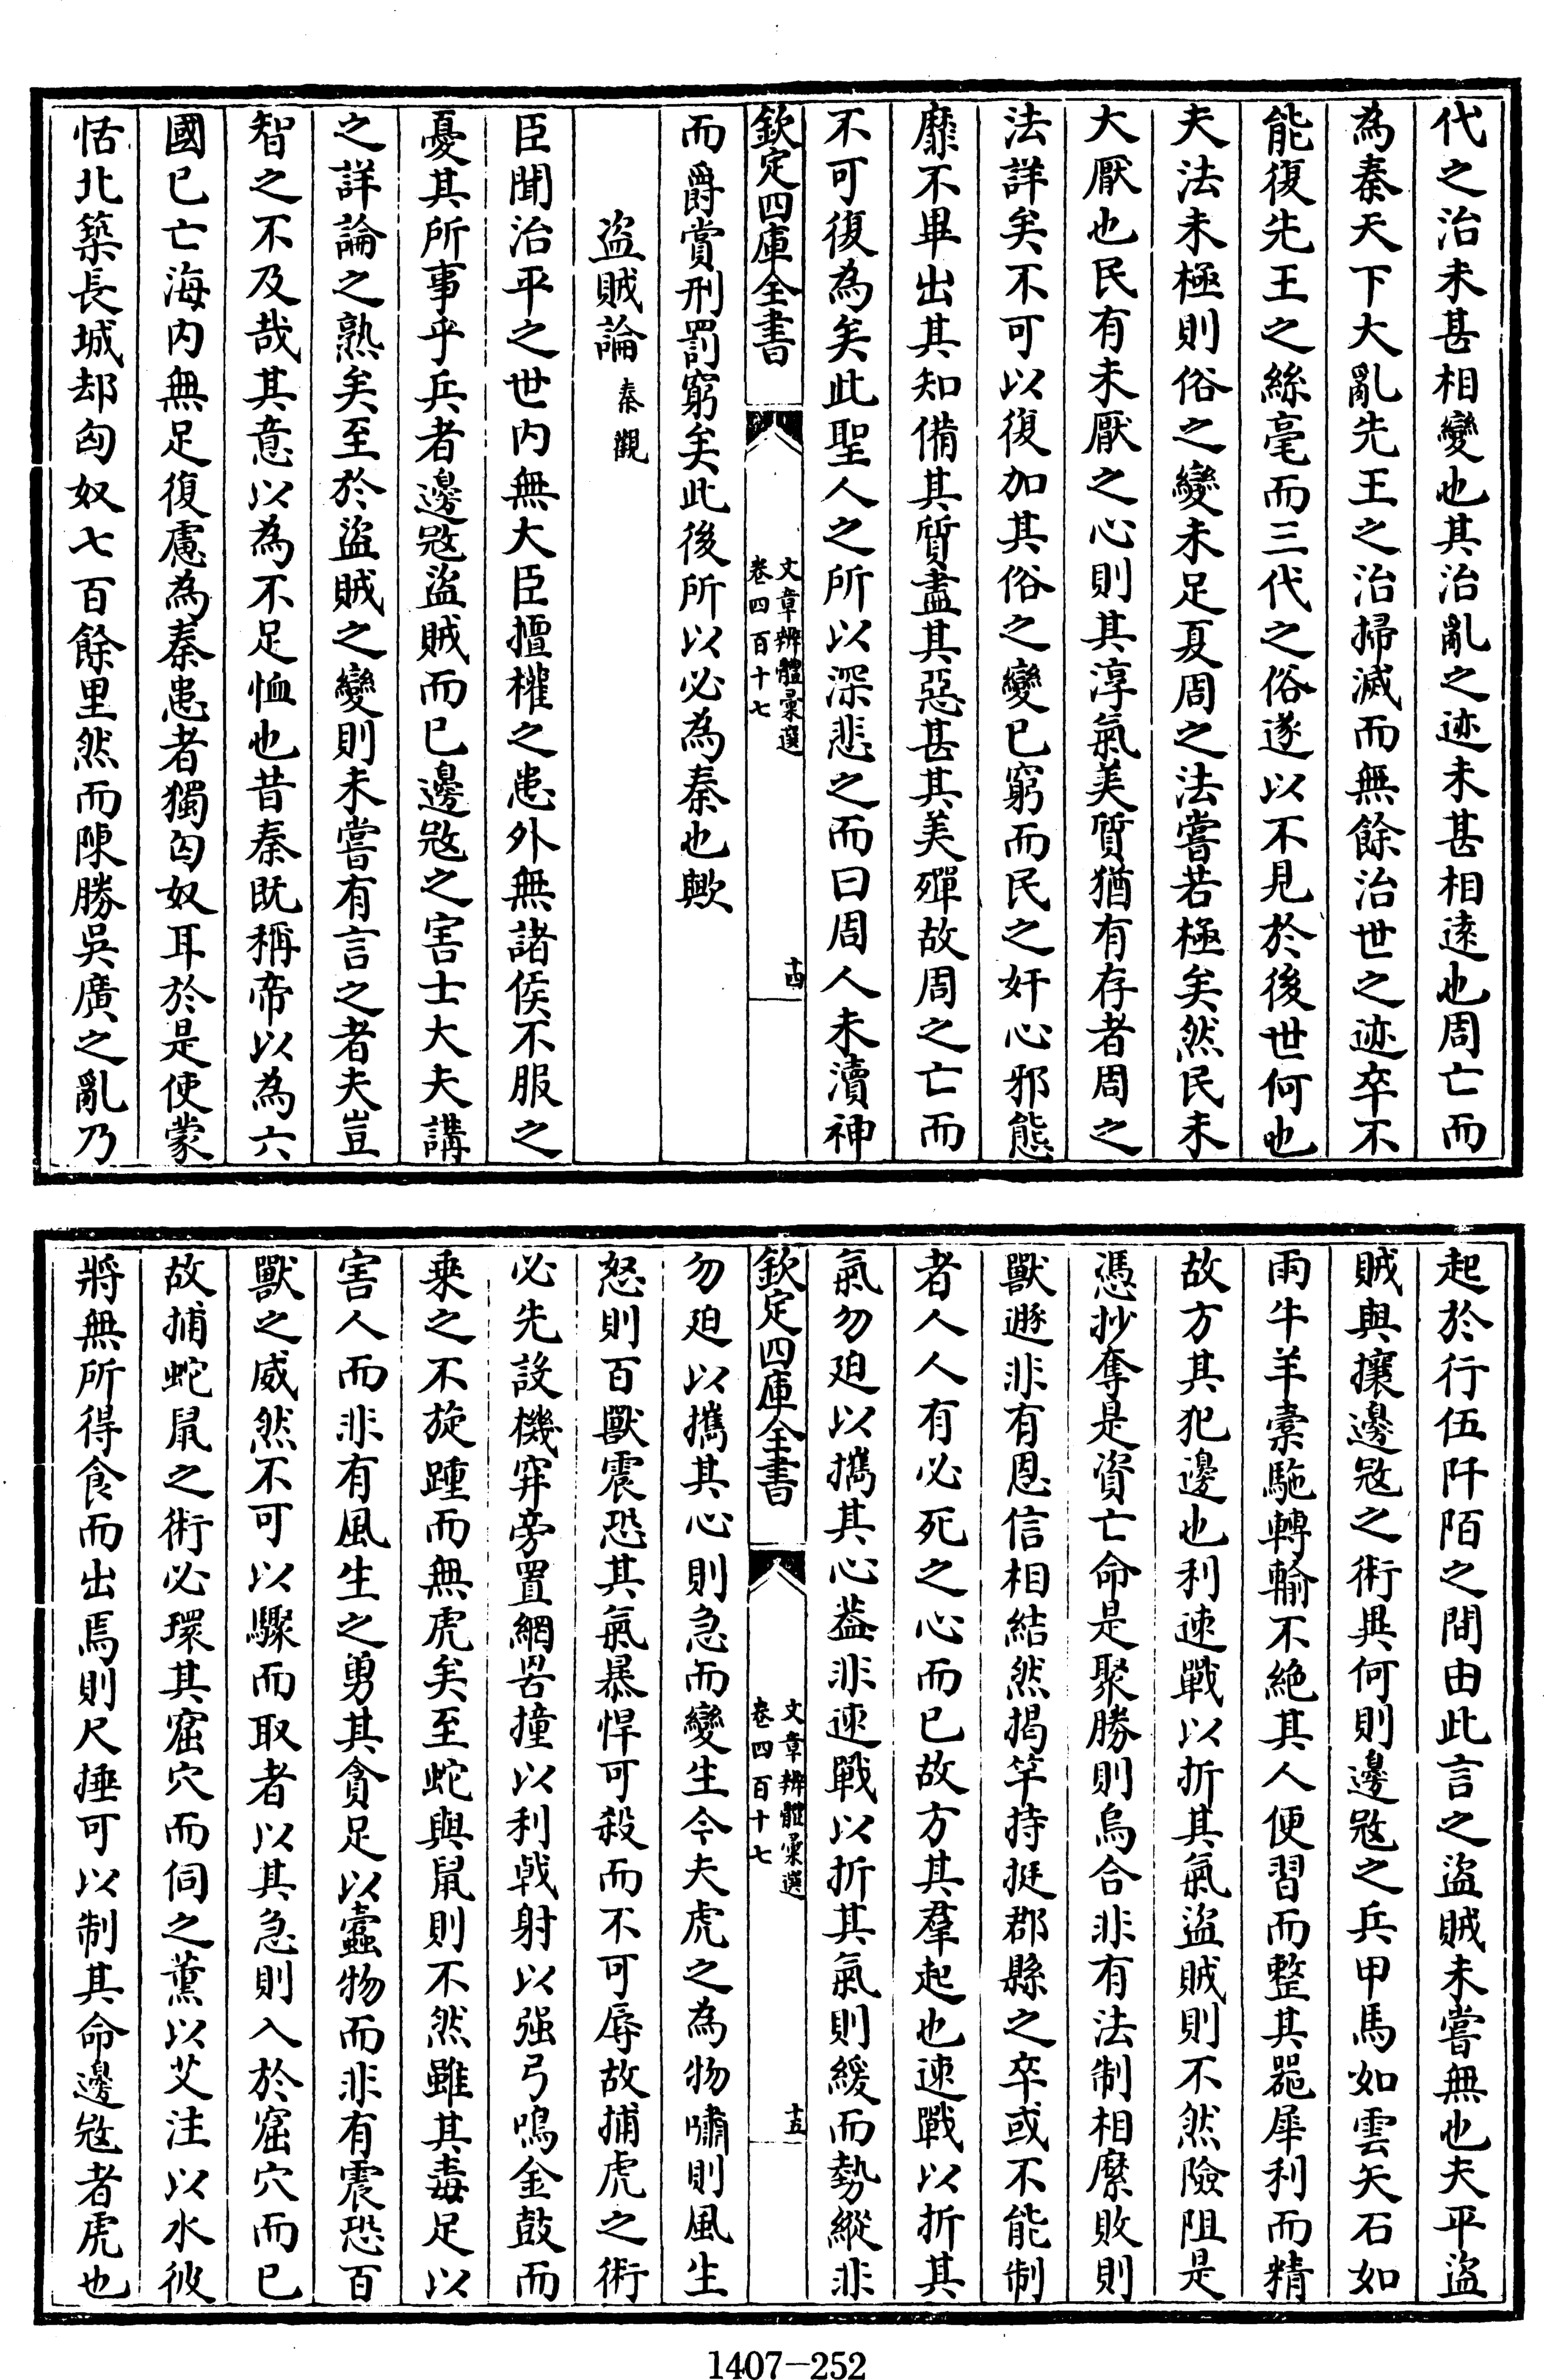 代之治未甚相變也其治亂之迹未甚相逺也周亡而
為秦天下大亂先王之治掃滅而無餘治世之迹卒不
能復先王之絲毫而三代之俗遂以不見於後世何也
夫法未極則俗之變未足夏周之法嘗若極矣然民未
大厭也民有未厭之心則其淳氣美質猶有存者周之
法詳矣不可以復加其俗之變已窮而民之奸心邪態
靡不畢出其知備其質盡其惡甚其美殫故周之亡而
不可復為矣此聖人之所以深悲之而曰周人未瀆神
欽定四庫全書
文章辨體彙選
卷四百十七
十四
而爵賞刑罰窮矣此後所以必為秦也歟
盜賊論 秦觀
臣聞治平之世内無大臣擅權之患外無諸侯不服之
憂其所事乎兵者邊宼盜賊而已邊宼之害士大夫講
之詳論之熟矣至於盜賊之變則未嘗有言之者夫豈
智之不及哉其意以為不足恤也昔秦既稱帝以為六
國已亡海内無足復慮為秦患者獨匈奴耳於是使蒙
恬北築長城却匈奴七百餘里然而陳勝吳廣之亂乃
起於行伍阡陌之間由此言之盜賊未嘗無也夫平盜
賊與攘邊宼之術異何則邊宼之兵甲馬如雲矢石如
雨牛羊槖駞轉輸不絶其人便習而整其器犀利而精
故方其犯邊也利速戰以折其氣盜賊則不然險阻是
憑抄奪是資亡命是聚勝則烏合非有法制相縻敗則
獸遯非有恩信相結然揭竿持挺郡縣之卒或不能制
者人人有必死之心而已故方其羣起也速戰以折其
氣勿廹以攜其心葢非速戰以折其氣則緩而勢縱非
欽定四庫全書
文章辨體彙選
卷四百十七
十五
勿廹以攜其心則急而變生今夫虎之為物嘯則風生
怒則百獸震恐其氣暴悍可殺而不可辱故捕虎之術
必先設機穽旁置網罟撞以利㦸射以强弓鳴金鼓而
乗之不旋踵而無虎矣至蛇與鼠則不然雖其毒足以
害人而非有風生之勇其貪足以蠧物而非有震恐百
獸之威然不可以驟而取者以其急則入於窟穴而已
故捕蛇鼠之術必環其窟穴而伺之薰以艾注以水彼
將無所得食而出焉則尺捶可以制其命邊宼者虎也
1407-252